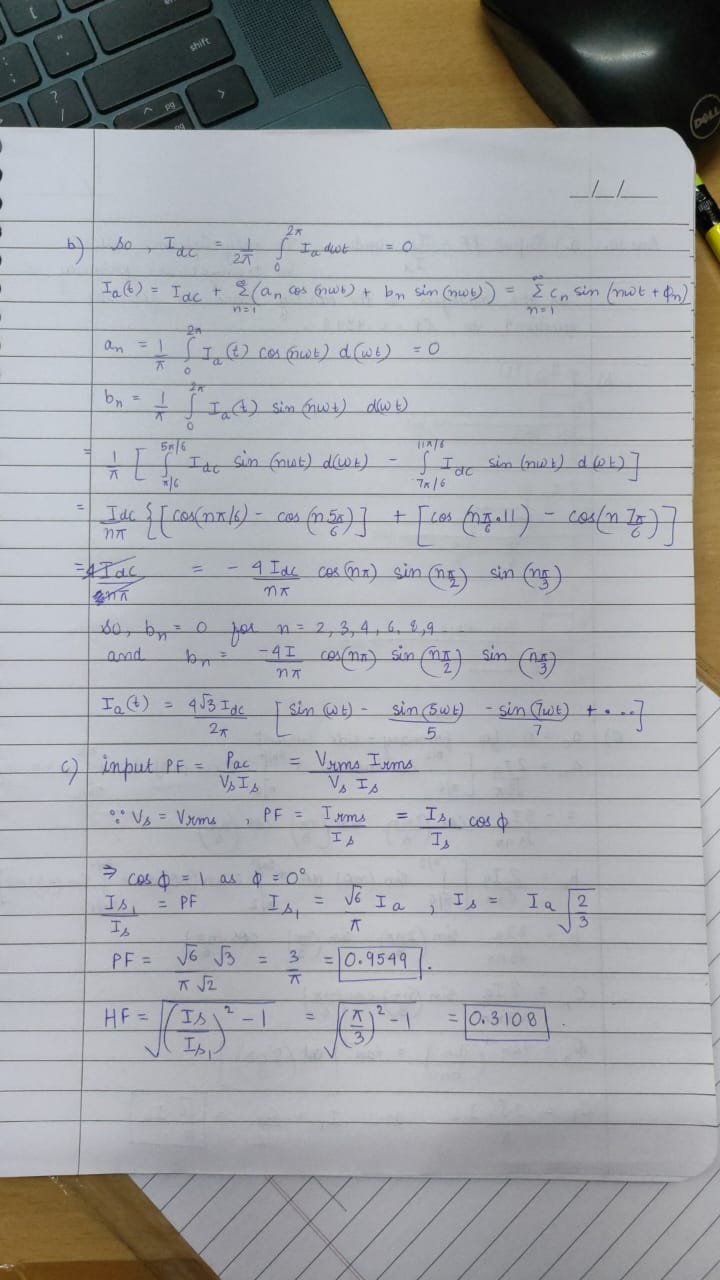 shift
pg
pg
DELL
_/_/_
b) So, Idc = 1/2π ∫₀^2π Ia dωt = 0
Ia(t) = Idc + Σ_{n=1}^∞ (an cos (nωt) + bn sin (nωt)) = Σ_{n=1}^∞ cn sin (nωt + ϕn)
an = 1/π ∫₀^2π Ia(t) cos (nωt) d(ωt) = 0
bn = 1/π ∫₀^2π Ia(t) sin (nωt) dωt)
= 1/π [ ∫_{π/6}^{5π/6} Idc sin (nωt) d(ωt) - ∫_{7π/6}^{11π/6} Idc sin (nωt) d(ωt) ]
= Idc/nπ { [ cos(nπ/6) - cos (n 5π/6) ] + [ cos (nπ/6 . 11) - cos(n 7π/6) ]
= 4Idc/2nπ = - 4 Idc/nπ cos (nπ) sin (nπ/2) sin (nπ/3)
So, bn = 0 for n = 2, 3, 4, 6, 8, 9
and bn = -4I/nπ cos(nπ) sin (nπ/2) sin (nπ/3)
Ia(t) = 4√3 Idc/2π [ sin (ωt) - sin (5ωt)/5 - sin (7ωt)/7 + .... ]
c) input PF = Pac/VsIs = Vrms Irms/Vs Is
∵ Vs = Vrms , PF = Irms/Is = Is1/Is cos ϕ
⇒ cos ϕ = 1 as ϕ = 0°
Is1/Is = PF Is1 = √6/π Ia , Is = Ia √(2/3)
PF = √6 √3/π √2 = 3/π = 0.9549 .
HF = √((Is/Is1)² - 1) = √((π/3)² - 1) = 0.3108 .